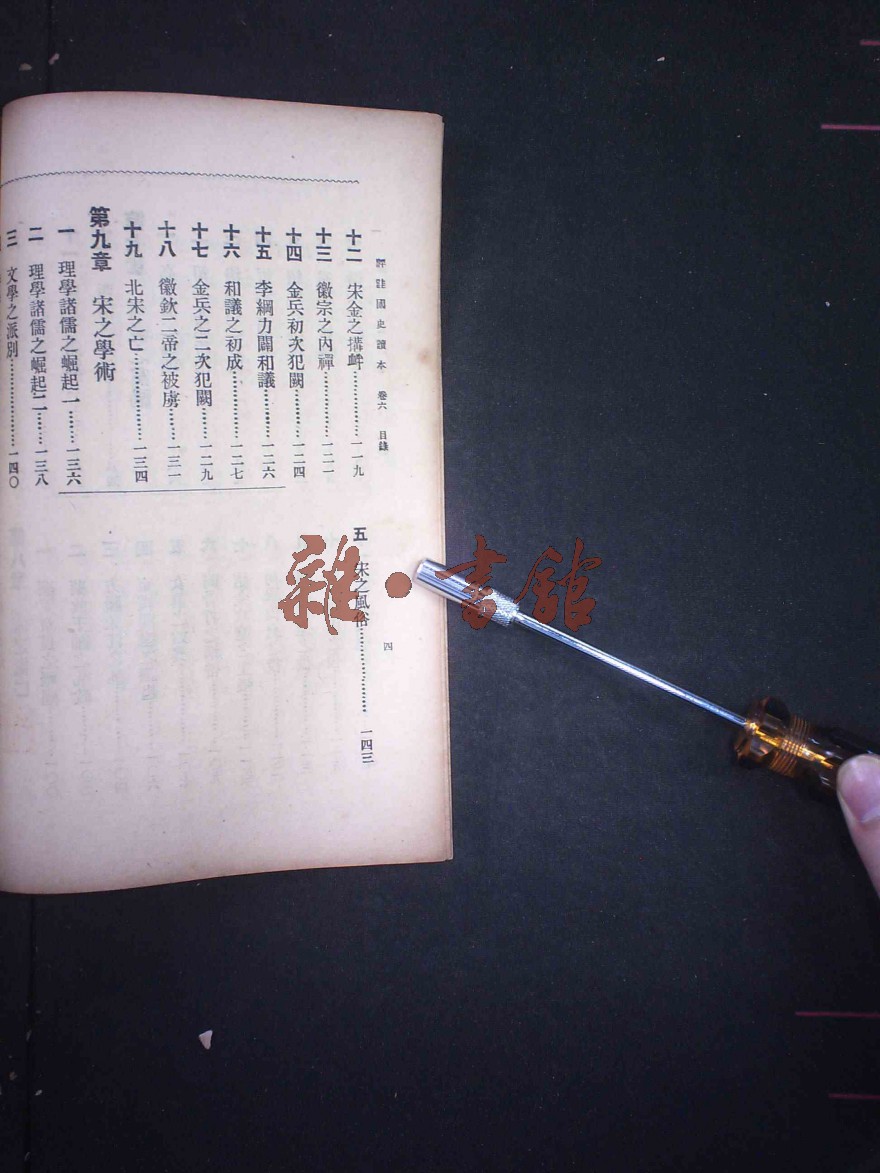 評註國史讀本 卷六 目錄
四
十二 宋金之搆衅………………一一九
十三 徽宗之內禪………………一二一
十四 金兵初次犯闕……………一二四
十五 李綱力闢和議……………一二六
十六 和議之初成………………一二七
十七 金兵之二次犯闕…………一二九
十八 徽欽二帝之被虜…………一三一
十九 北宋之亡…………………一三四
第九章 宋之學術
一 理學諸儒之崛起一………一三六
二 理學諸儒之崛起二………一三八
三 文學之派別………………一四〇
五 宋之風俗…………………一四三
雜·書館